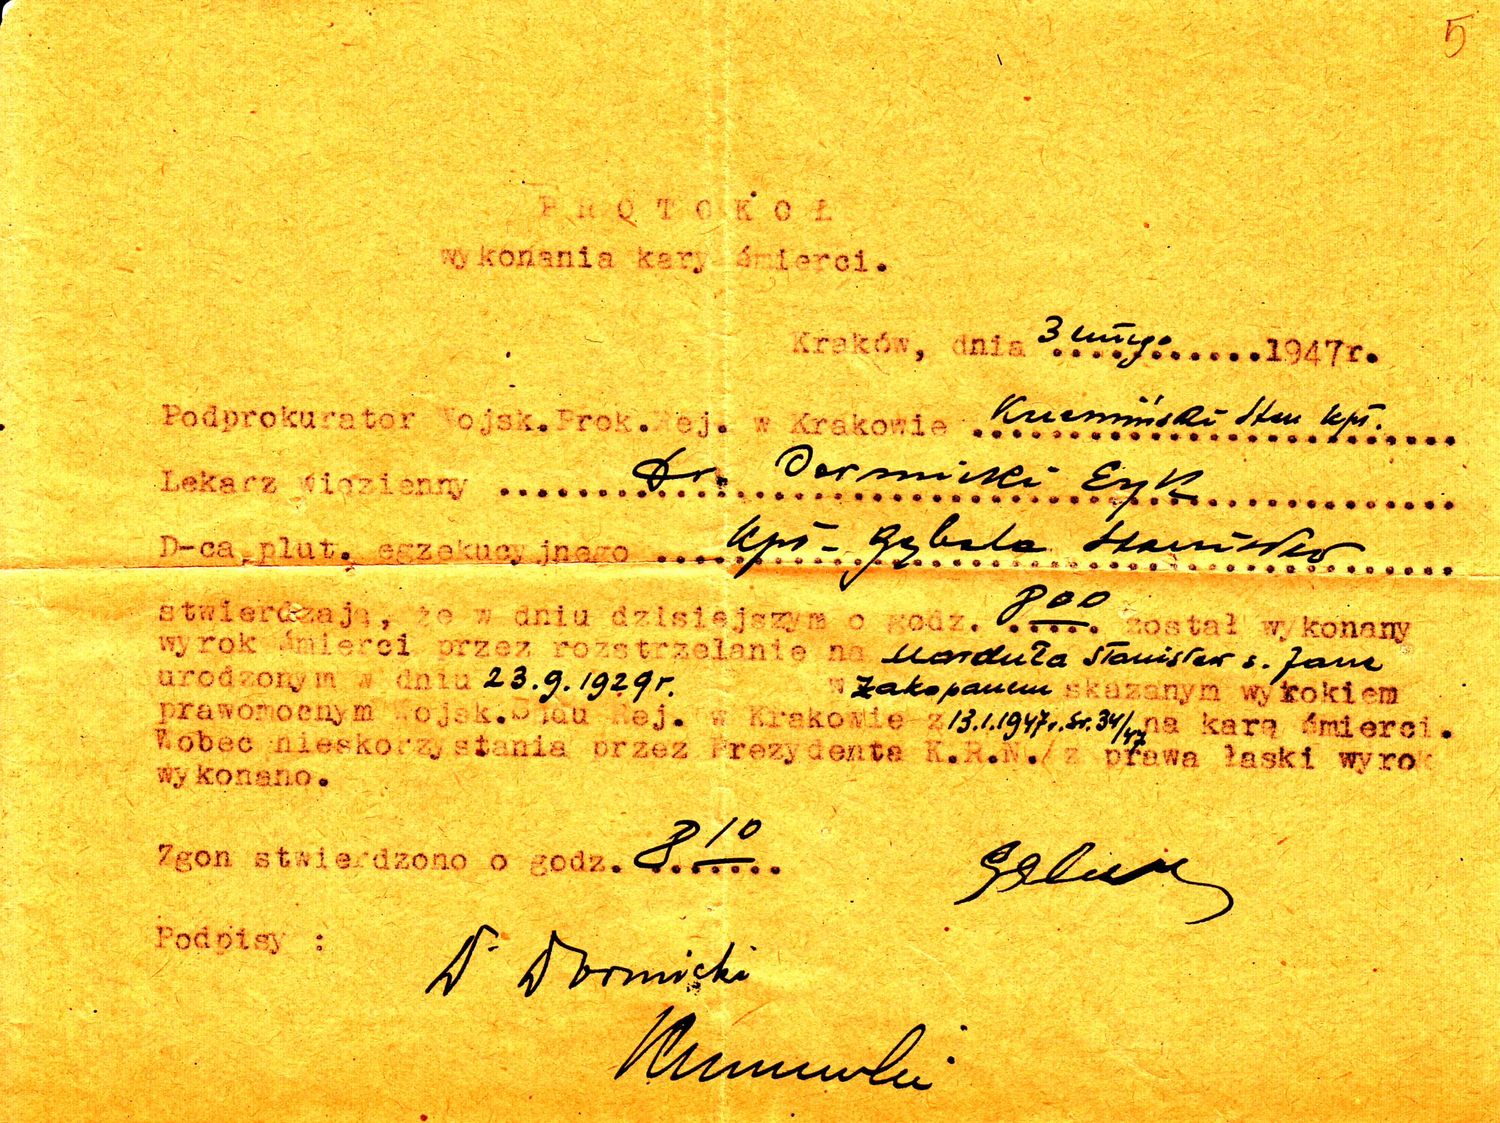 5
PROTOKOŁ
wykonania kary śmierci.
Kraków, dnia 3 lutego ........... 1947r.
Podprokurator Wojsk.Prok.Rej. w Krakowie Krzemiński Stan kpt.
Lekarz więzienny Dr. Dormicki Eryk
D-ca plut. egzekucyjnego kpt. Gębala Stanisław
stwierdzają, że w dniu dzisiejszym o godz. 8 00 został wykonany
wyrok śmierci przez rozstrzelanie na Marduła Stanisław s. Jana
urodzonym w dniu 23.9.1929r. w Zakopanem skazanym wyrokiem
prawomocnym Wojsk.Sądu Rej. w Krakowie z 13.1.1947r. Sr. 34/47 na karę śmierci.
Wobec nieskorzystania przez Prezydenta K.R.N./z prawa łaski wyrok
wykonano.
Zgon stwierdzono o godz. 8 10
Podpisy :
Dr Dormicki